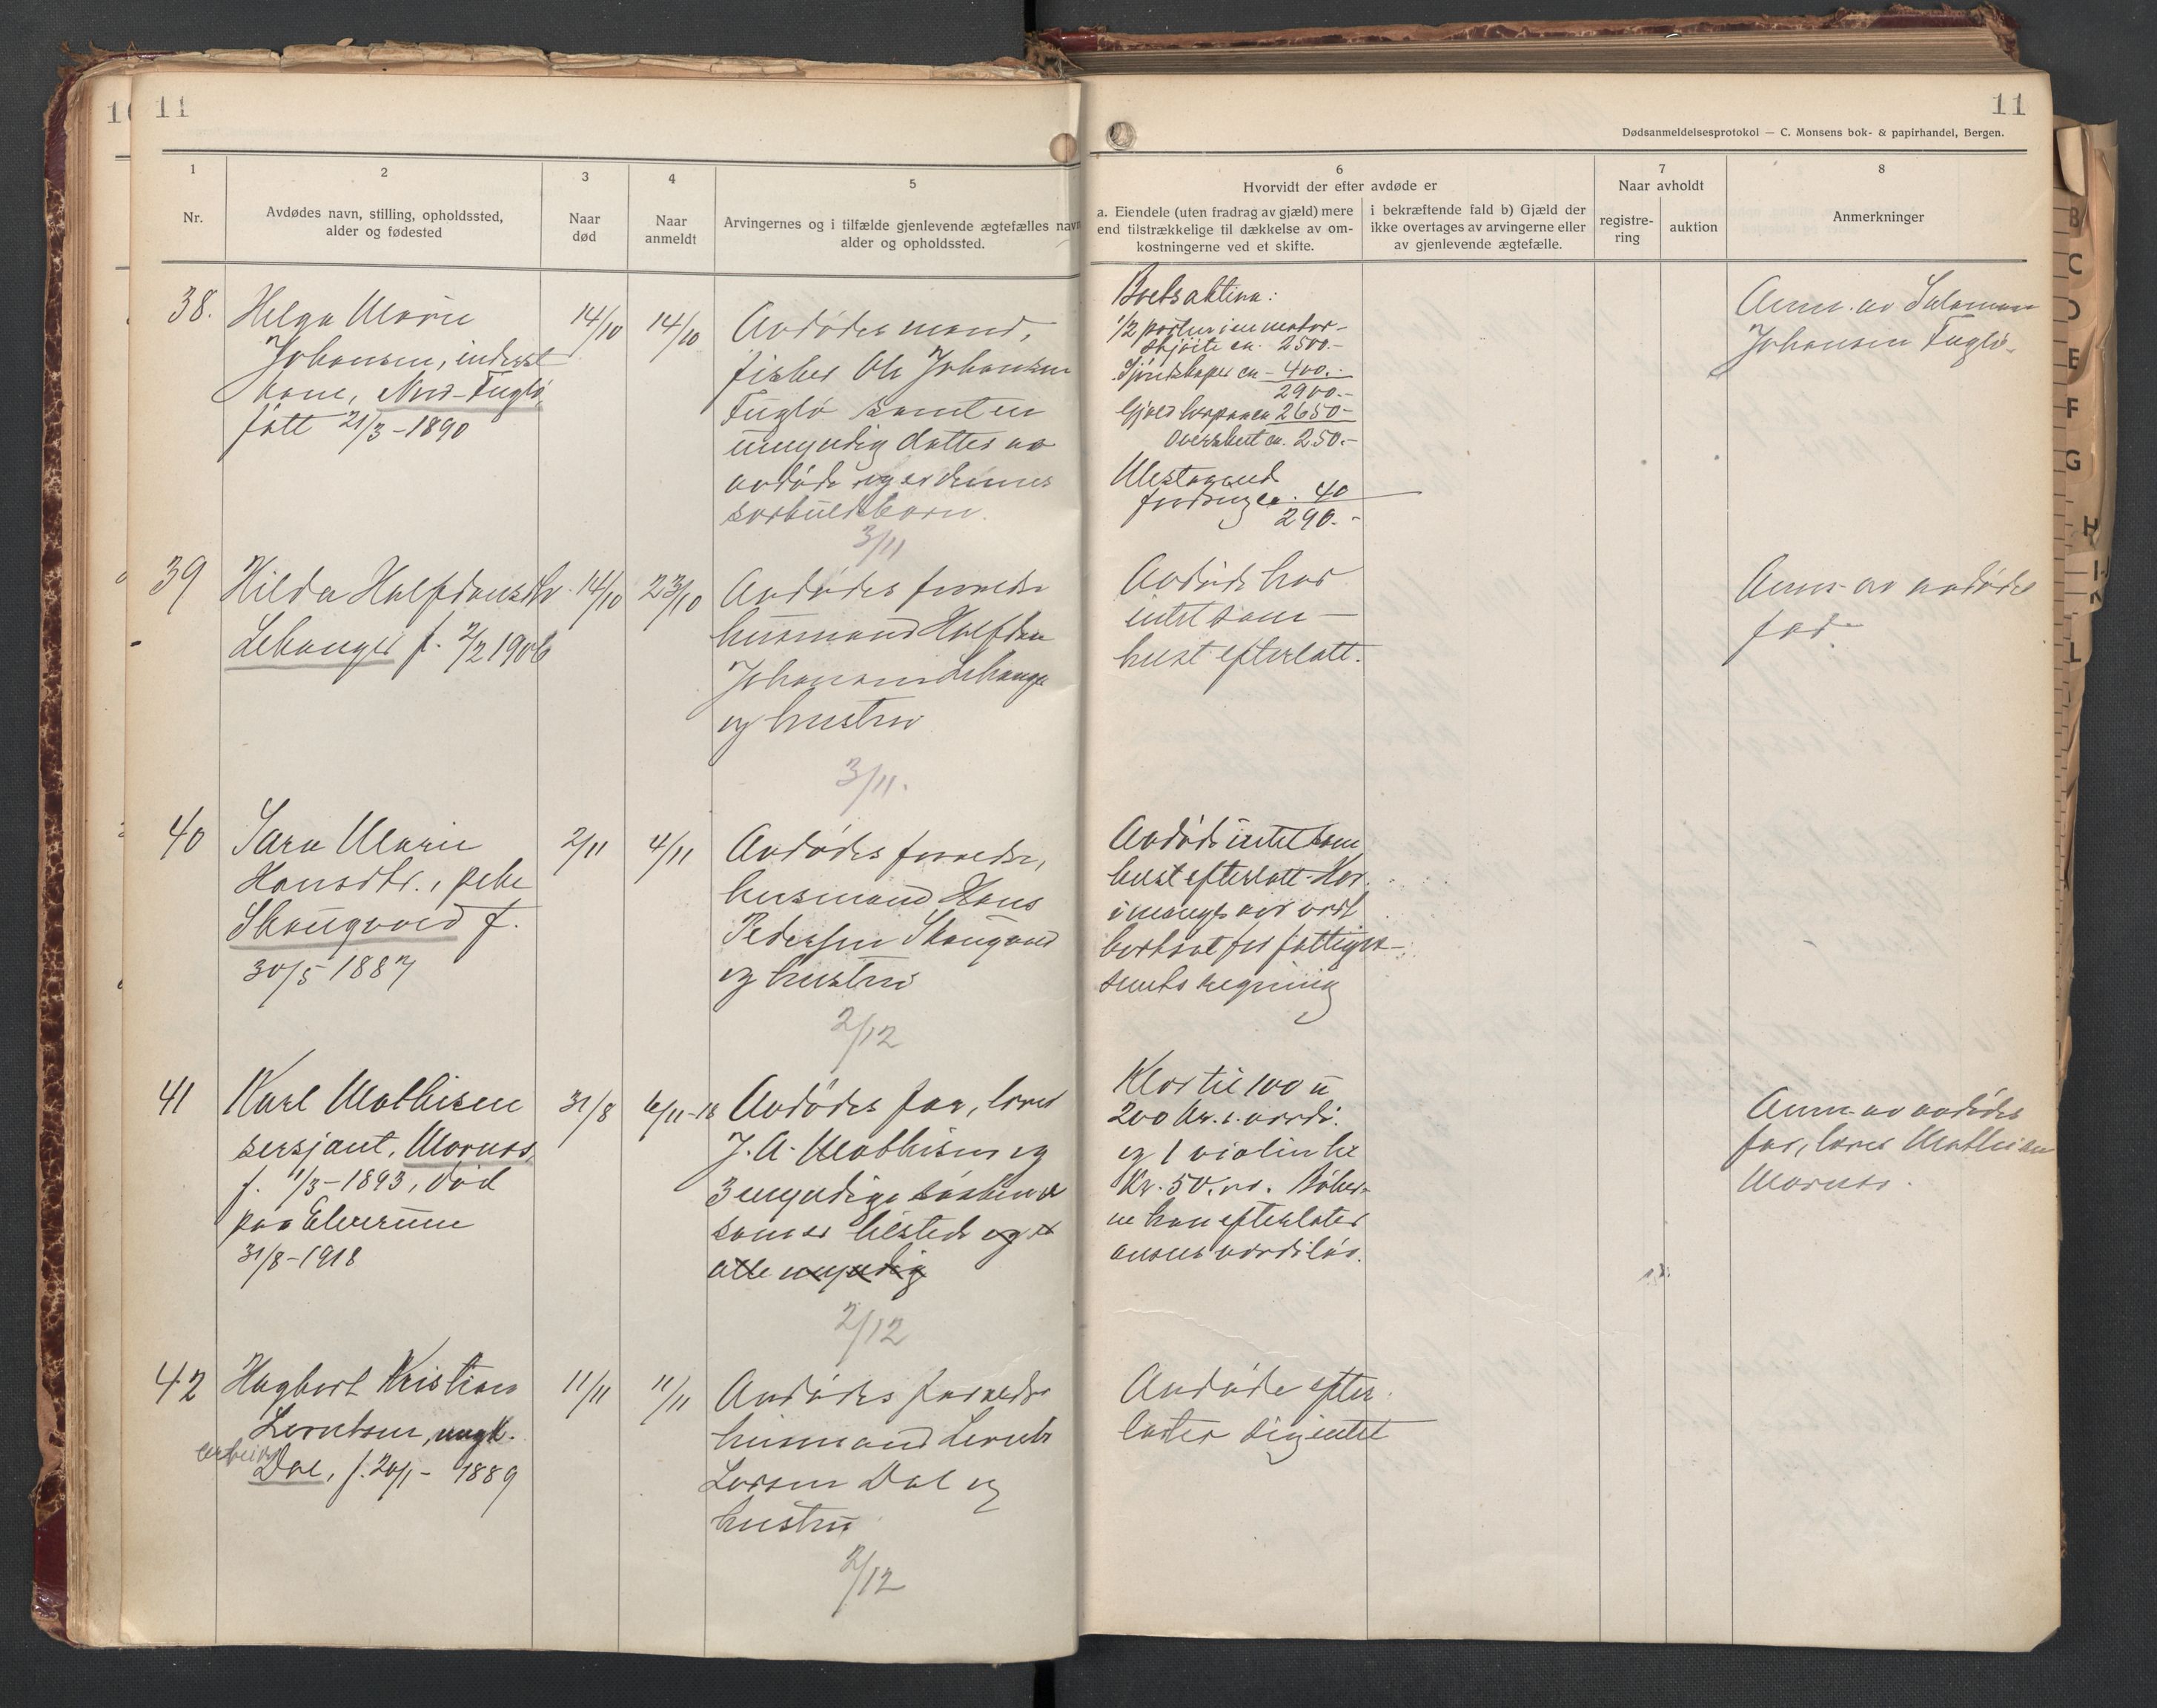 11
11
Dødsanmeldelsesprotokol — C. Monsens bok- & papirhandel, Bergen.
1
Nr.
2
Avdødes navn, stilling, opholdssted,
alder og fødested
3
Naar
død
4
Naar
anmeldt
5
Arvingernes og i tilfælde gjenlevende ægtefælles navn
alder og opholdssted.
6
Hvorvidt der efter avdøde er
a. Eiendele (uten fradrag av gjæld) mere
end tilstrækkelige til dækkelse av om-
kostningerne ved et skifte.
i bekræftende fald b) Gjæld der
ikke overtages av arvingerne eller
av gjenlevende ægtefælle.
7
Naar avholdt
registre-
ring
auktion
8
Anmerkninger
38.
Helga Marie
Johansen, inderst
kone, Nord-Fuglø,
født 21/3-1890
14/10
14/10
Avdødes mand,
fisker Ole Johansen
Fuglø samt en
umyndig datter av
avdøde og er dennes
særkuldsbarn.
3/11
Boets aktiva:
1/2 part i en motor-
skjøite ca. 2500.-
Sjøredskaper ca - 400.-
2900.-
Gjæld herpaa ca 2650-
Overskut ca. 250.-
Utestaaende
fordring ca. 40
290.-
Anm. av Salamon
Johansen Fuglø.
39
Hilda Halfdansdtr
Lekanger f. 2/2 1906
14/10
23/10
Avdødes forældre
husmand Halfdan
Johansen Lekanger
og hustru
3/11.
Avdøde har
intet som-
helst efterlatt.
Anm. av avdødes
far.
40
Sara Marie
Hansdtr., pike
Skaugvold f.
30/5 1887
2/11
4/11
Avdødes forældre,
husmand Hans
Pedersen Skaugvold
og hustru
2/12
Avdøde intet som
helst efterlatt. Har
i mange aar vært
bortsat for fattigvæ-
senets regning
41
Karl Mathisen
sersjant, Mornes,
f. 11/3-1893, død
paa Elverum
31/8-1918
31/8
6/11-18
Avdødes far, lærer
J. A. Mathisen og
3 umyndige søskende
som er tilstede og er
alle umyndig
2/12
Klær til 100 à
200 kr. i værdi.
og 1 violin til
Kr. 50. Bøker-
ne han efterlater
ansees værdiløs.
Anm. av avdødes
far, lærer Mathisen
Mornes.
42
Hagbart Kristian
Lorntsen, ungk.
arbeider
Dal, f. 20/1- 1889
11/11
11/11
Avdødes forældre
husmand Lornts
Larsen Dal og
hustru
2/12
Avdøde efter-
later sig intet
B
C
D
E
F
G
H
L